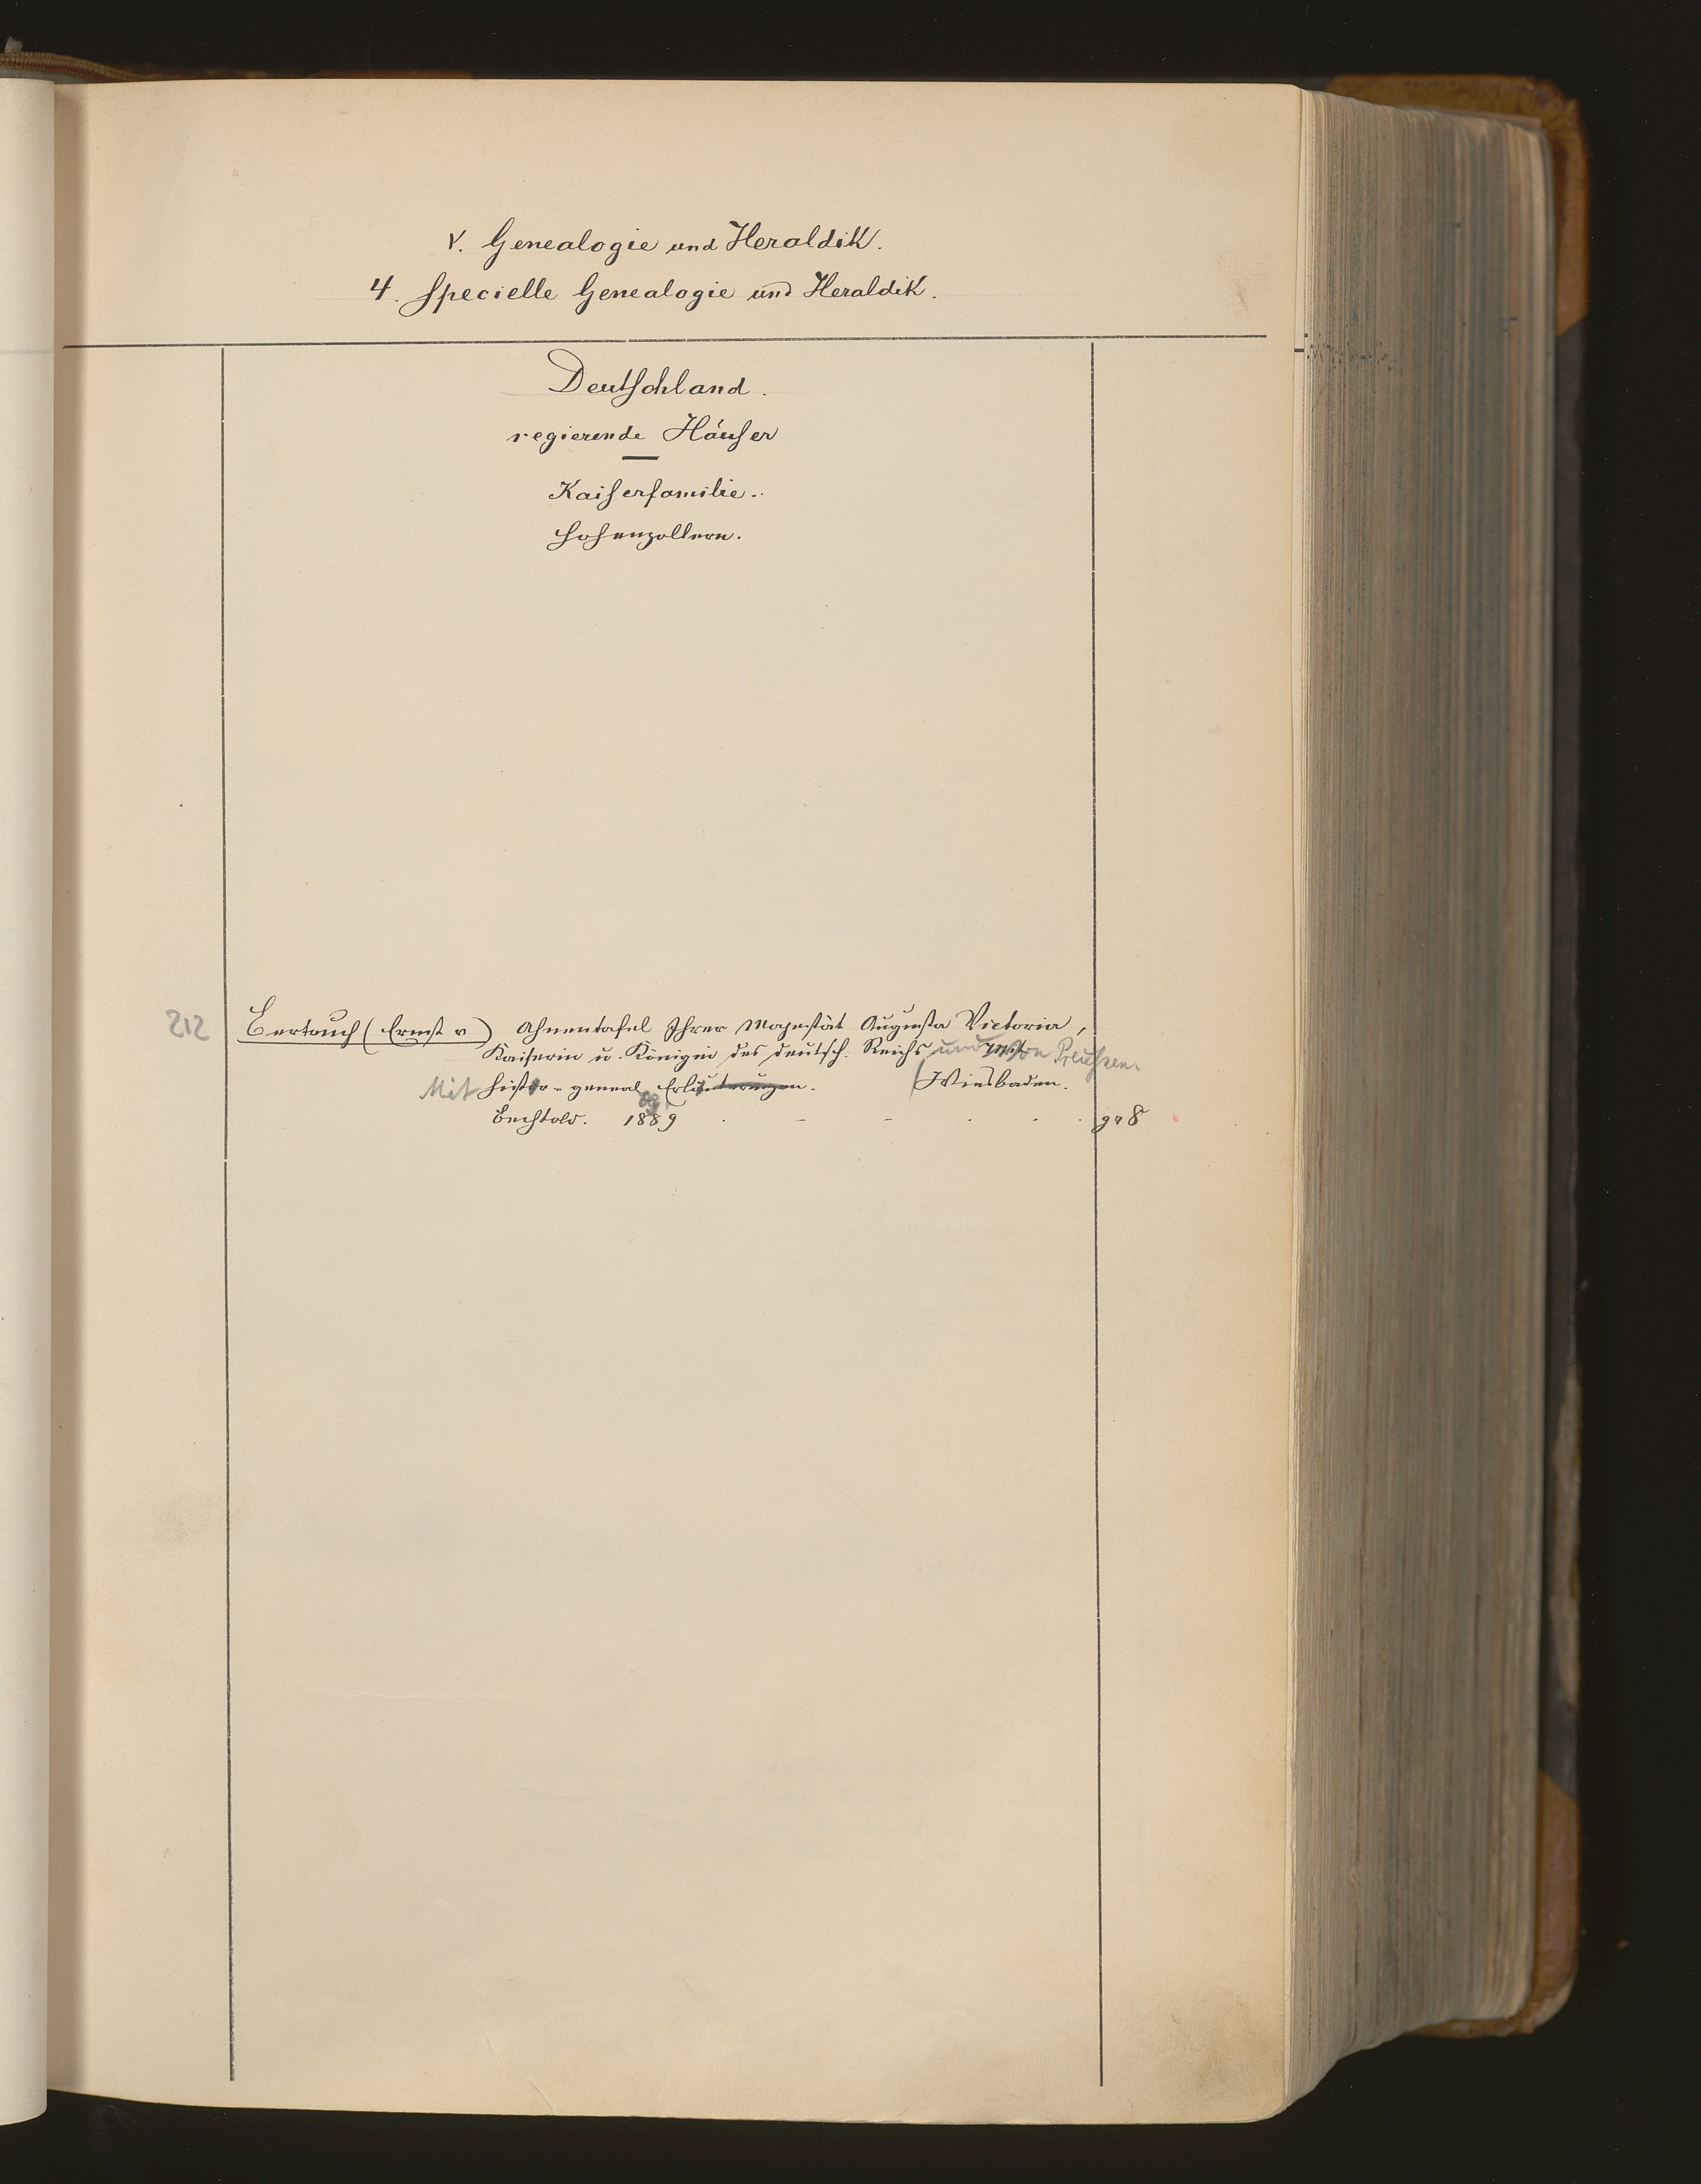 V. Genealogie und Heraldik.
4. Specielle Genealogie und Heraldik.
Deutschland.
regierende Häuser
Kaiserfamilie.
Hohenzollern.
212 Bertouch (Ernst v) Ahnentafel Ihrer Majestät Augusta Victoria,
Kaiserin u. Königin des deutsch. Reichs und von Preussen.
Mit histor-geneal Erläuterungen. Wiesbaden.
Bechtold. 1889 gr 8